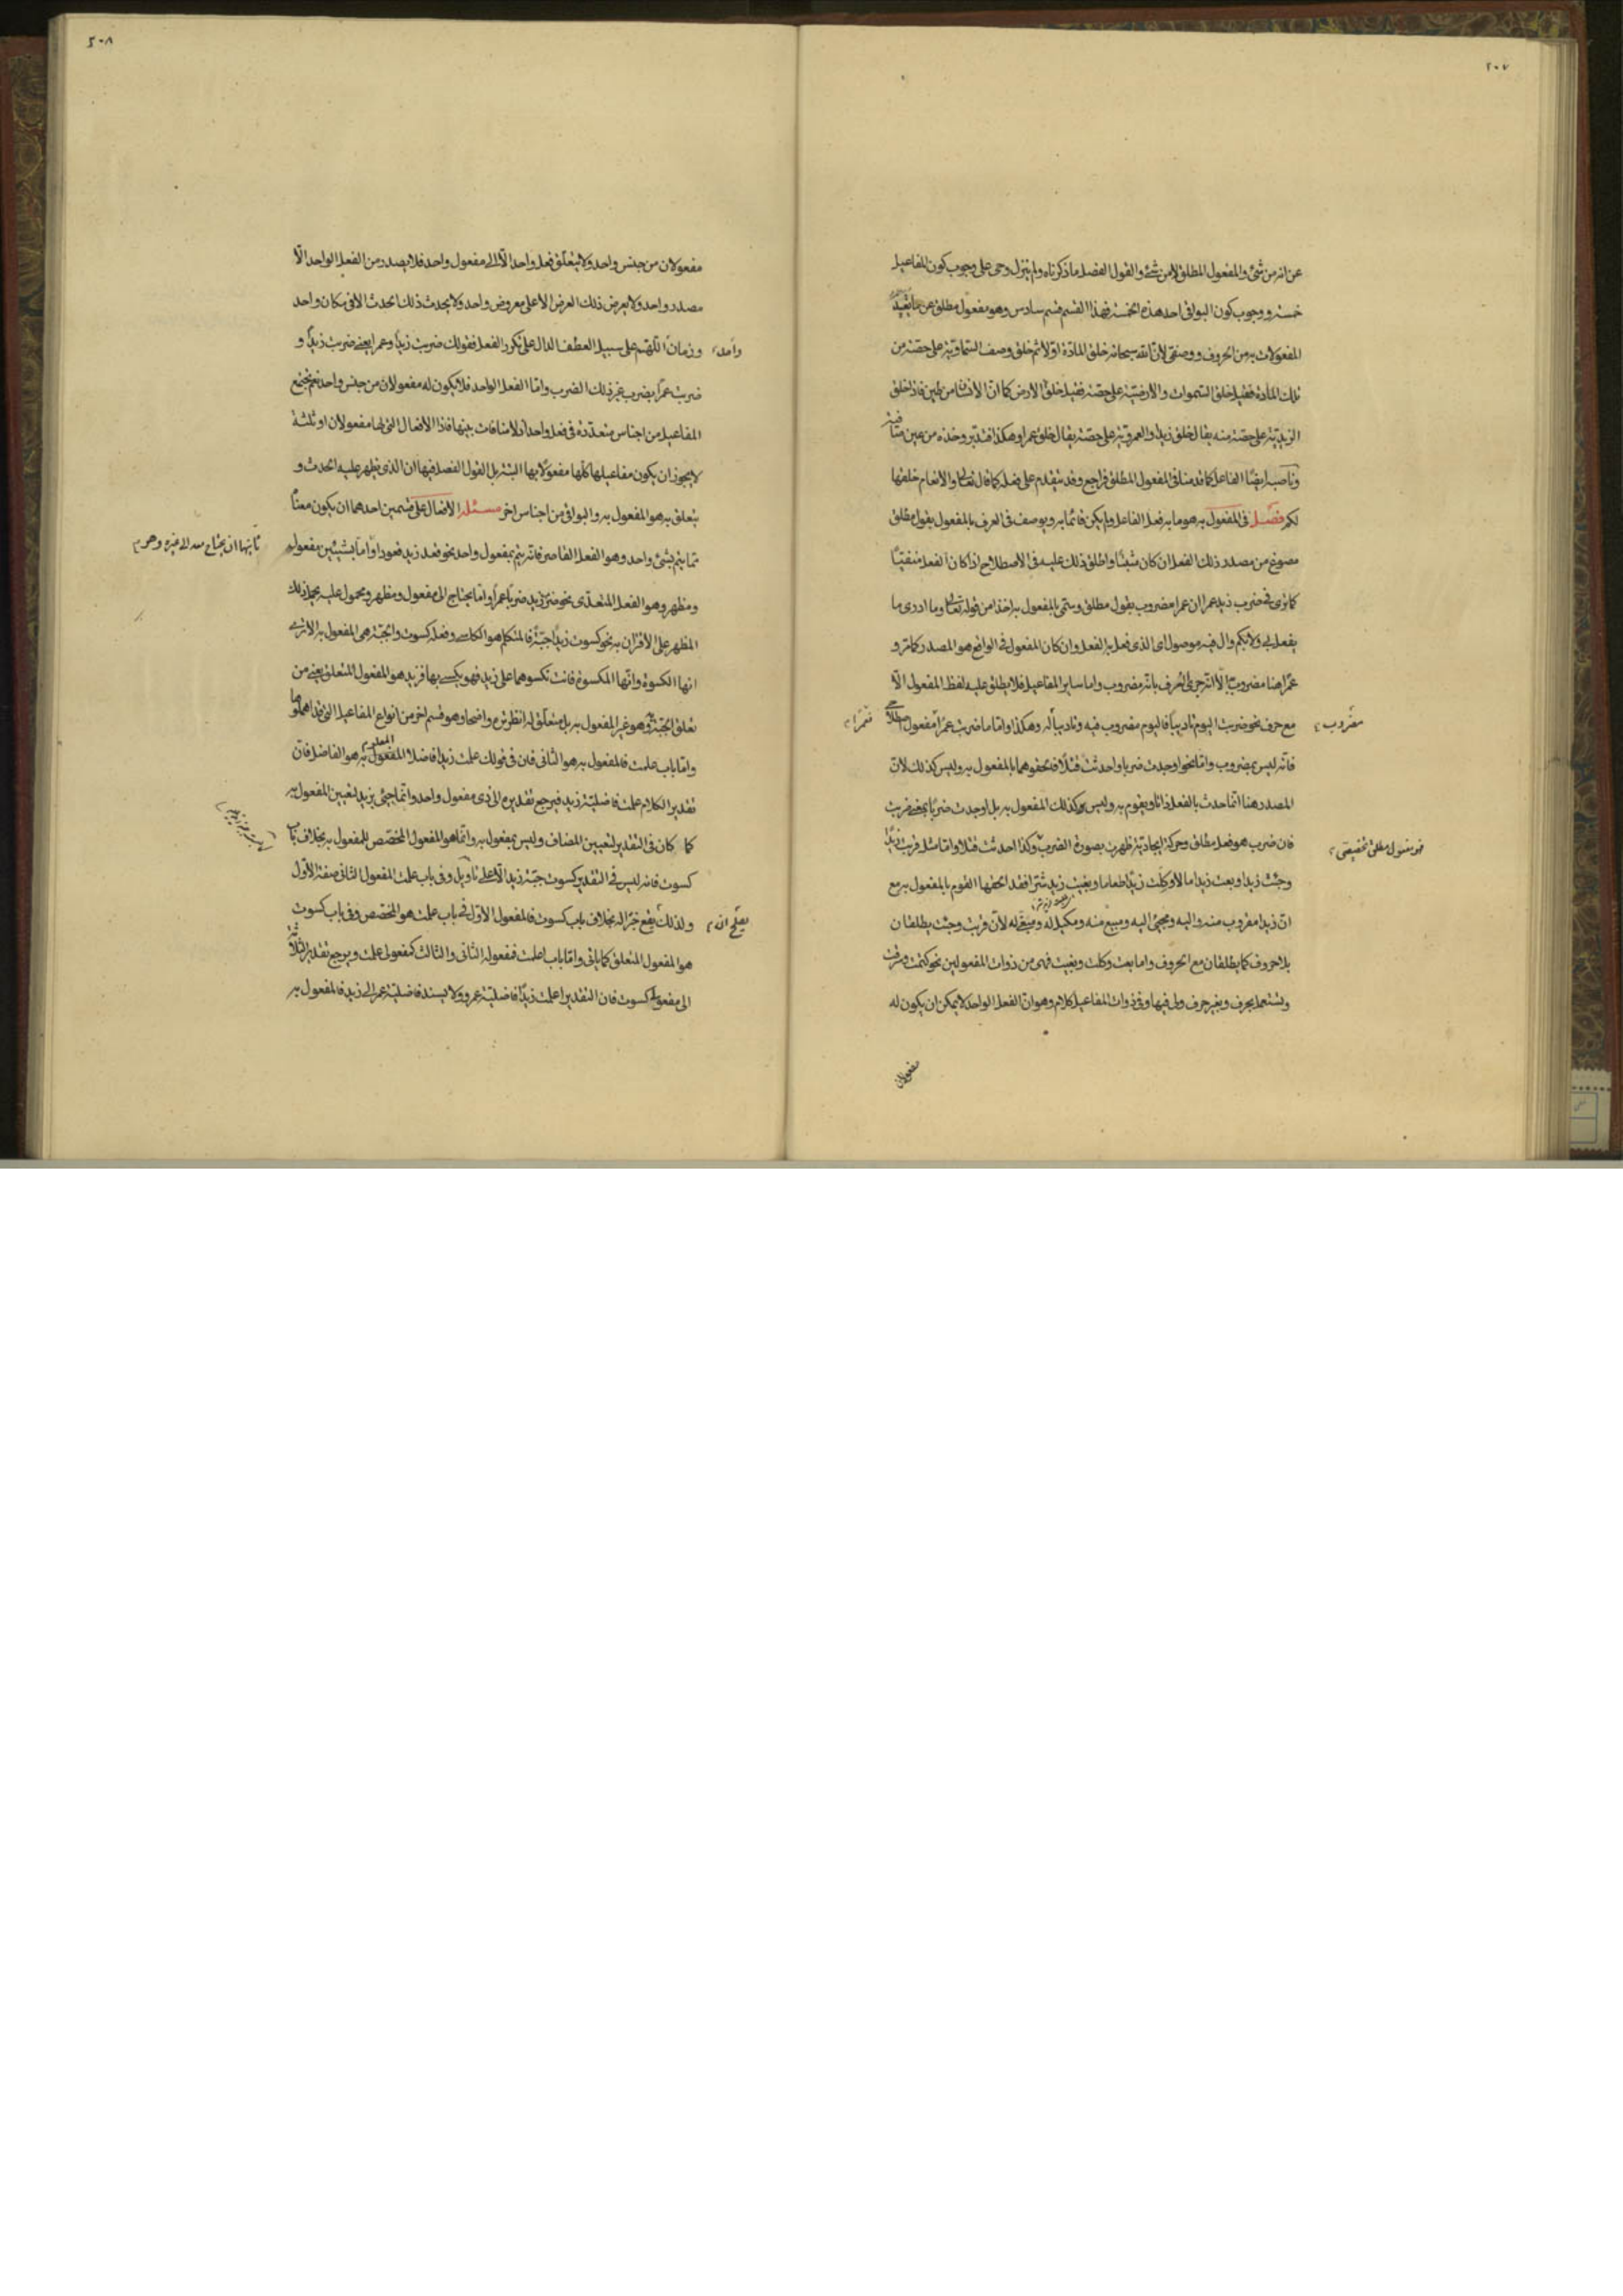 ٢٠٧
عن انه من شئ والمفعول المطلق لا من شئ والقول الفصل ما ذكرناه ولم ينزل وحى على وجوب كون المفاعيل
خمسة ووجوب كون البواقى احد هذه الخمسة فهذا القسم قسم سادس وهو مفعول مطلق عن ما تقيد
المفعولات به من الحروف ووصفى لان الله سبحانه خلق المادة اولا ثم خلق وصف السماوية على حصة من
تلك المادة فقيل خلق السموات والارضية على حصة فقيل خلق الارض كما ان الانسان من طين فاذا خلق
الزيدية على حصة منه يقال خلق زيدا والعمروية على حصة يقال خلق عمرا وهكذا فتدبر وخذه من عين صافية
وناصبه ايضا الفاعل كما قدمنا فى المفعول المطلق فراجع وقد يتقدم على فعله كما قال تعالى والانعام خلقها
لكم فصل فى المفعول به هو ما به فعل الفاعل ولم يكن قائما به ويوصف فى العرف بالمفعول بقول مطلق
مصوغ من مصدر ذلك الفعل ان كان مثبتا واطلق ذلك عليه فى الاصطلاح اذا كان الفعل منفيا
كما ترى فى ضرب زيد عمرا ان عمرا مضروب بقول مطلق وسمى بالمفعول به اخذا من قوله تعالى وما ادرى ما
يفعل بى ولا بكم وال فيه موصول اى الذى فعل به الفعل وان كان المفعول فى الواقع هو المصدر كما مر و
عمرا هنا مضروب به الا انه جرى العرف بانه مضروب واما ساير المفاعيل فلا يطلق عليه لفظ المفعول الا
مع حرف نحو ضربت اليوم تاديبا فاليوم مضروب فيه وتاديبا له وهكذا واما ما ضربت عمرا مفعول اصطلاحى
مضروب
فعمرا
فانه ليس بمضروب واما نحو اوجدت ضربا واحدثت قتلا فلحقوهما بالمفعول به وليس كذلك لان
المصدر هنا انما حدث بالفعل ذاتا ويقوم به وليس كذلك المفعول به بل اوجدت ضربا بمعنى ضربت
فان ضرب هو فعل مطلق وحركة ايجادية ظهرت بصورة الضرب وكذا احدثت قتلا واما مثل قربت زيدا
فهو مفعول مطلق حقيقى
وجئت زيدا وبعت زيدا مالا وكلت زيدا طعاما وبغيت زيد شرا فقد الحقها القوم بالمفعول به مع
ان زيدا مقروب منه واليه ومجئ اليه ومبيع منه ومكيل له ومبغى له لان قربت وجئت يطلقان
بلا حروف كما يطلقان مع الحروف واما بعت وكلت وبغيت فهى من ذوات المفعولين نحو كتمت وسرقت
وتستعمل بحرف وبغير حرف ولى فيها وفى ذوات المفاعيل كلام وهو ان الفعل الواحد لا يمكن ان يكون له
مفعولان
٢٠٨
مفعولان من جنس واحد ولا يتعلق فعل واحد الا الى مفعول واحد فلا يصدر من الفعل الواحد الا
مصدر واحد ولا يعرض ذلك العرض الا على معروض واحد ولا يحدث ذلك الحدث الا فى مكان واحد
وزمان اللهم على سبيل العطف الدال على تكرر الفعل فقولك ضربت زيدا وعمرا يعنى ضربت زيدا و
واحد
ضربت عمرا بضرب غير ذلك الضرب واما الفعل الواحد فلا يكون له مفعولان من جنس واحد نعم تجتمع
المفاعيل من اجناس متعددة فى فعل واحد اذ لا منافات بينها فاذا الافعال التى لها مفعولان او ثلثة
لا يجوز ان يكون مفاعيلها كلها مفعولا بها البتة بل القول الفصل فيها ان الذى يظهر عليه الحدث و
يتعلق به هو المفعول به والبواقى من اجناس اخر مسئلة الافعال على قسمين احدهما ان يكون معناه
مما يتم بشئ واحد وهو الفعل القاصر فانه يتم بمفعول واحد نحو قعد زيد قعودا واما بشيئين مفعول
ثانيهما ان يحتاج معه الى غيره وهو
ومظهر وهو الفعل المتعدى نحو ضرب زيد ضربا عمرا واما يحتاج الى مفعول ومظهر ومحمول عليه يحمل ذلك
المظهر على الاقتران به نحو كسوت زيدا جبة فالمتكلم هو الكاسى وفعله كسوت والجبة هى المفعول به الا ترى
انها الكسوة وانها المكسوة فانت تكسوها على زيد فهو يكتسى بها فزيد هو المفعول المتعلق يعنى من
تعلق الجبة به وهو غير المفعول به بل متعلق له انظر ترى واضحا وهو قسم اخر من انواع المفاعيل التى قد اهملوها
واما باب علمت فالمفعول به هو الثانى فان فى قولك علمت زيدا فاضلا المفعول به هو الفاضل فان
المعلوم
تقدير الكلام علمت فاضلية زيد فيرجع تقديره الى ذى مفعول واحد وانما جئ بزيد لتعيين المفعول به
كما كان فى التقدير لتعيين المضاف وليس بمفعول به وانما هو المفعول المخصص للمفعول به بخلاف باب
كسوت فانه ليس فى التقدير كسوت جبة زيد الا على تاويل وفى باب علمت المفعول الثانى صفة الاول
ولذلك يقع خبرا له بخلاف باب كسوت فالمفعول الاول فى باب علمت هو المخصص وفى باب كسوت
يصح انه
هو المفعول المتعلق كما ياتى واما باب اعلمت فمفعوله الثانى والثالث كمفعولى علمت ويرجع تقدير الثلاثة
الى مفعولى كسوت فان التقدير اعلمت زيدا فاضلية عمرو ولا يسند فاضلية عمر الى زيد فالمفعول به